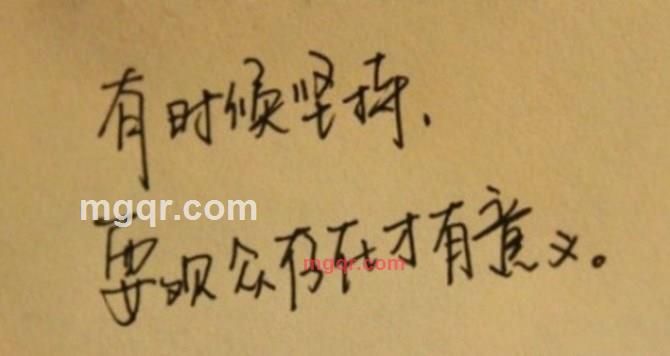 有时候坚持，
mgqr.com
要观众存在才有意义。
mgqr.com